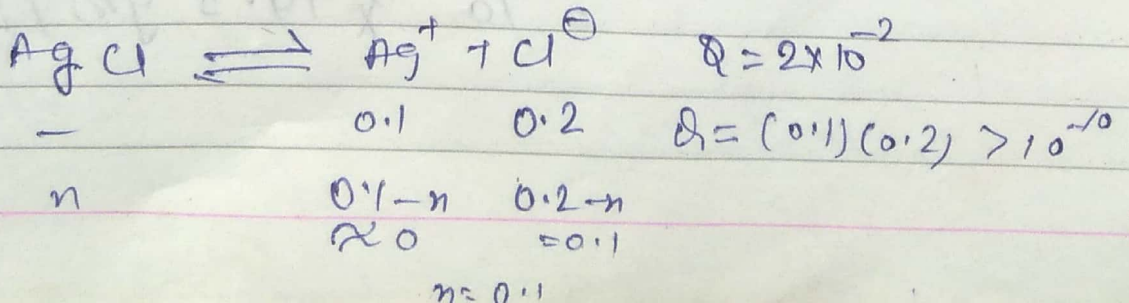 Ag Cl ⇌ Ag⁺ + Cl⊖ Q = 2×10⁻²
— 0.1 0.2 Q = (0.1)(0.2) > 10⁻¹⁰
n 0.1-n 0.2-n
≈ 0 =0.1
n= 0.1